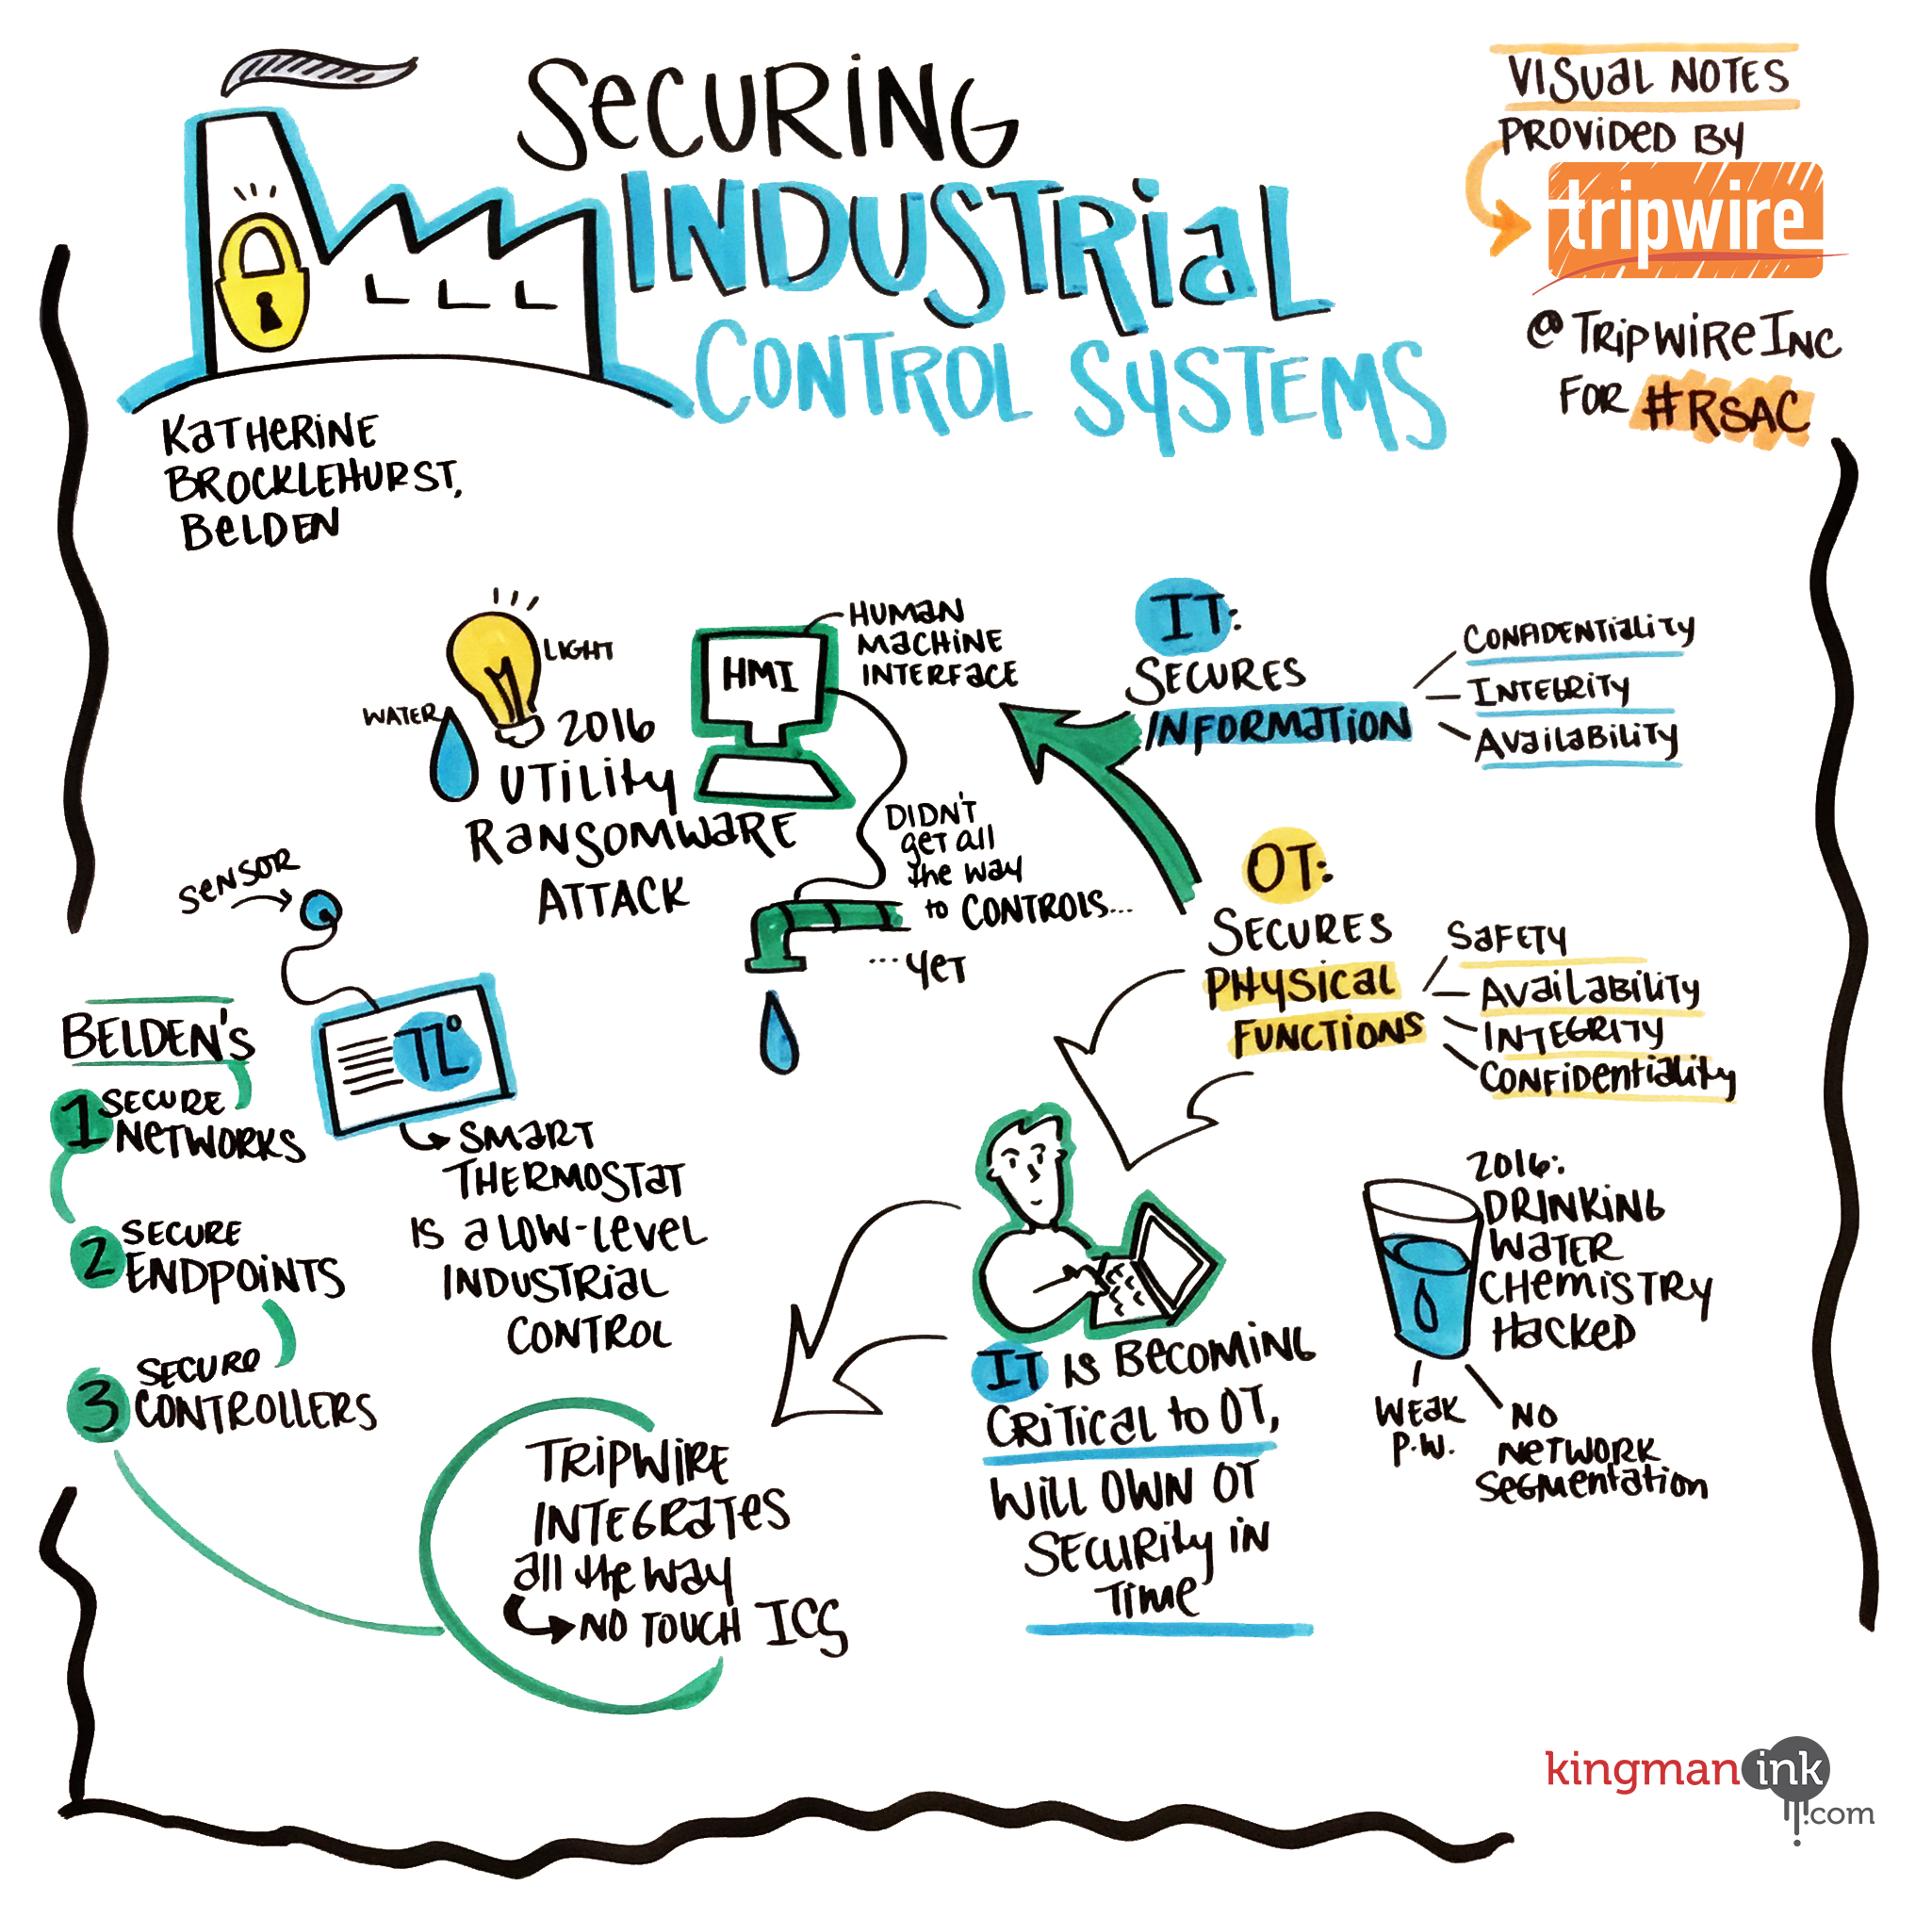 SECURING
INDUSTRIAL
CONTROL SYSTEMS
VISUAL NOTES
PROVIDED BY
tripwire
@TRIPWIREINC
FOR #RSAC
KATHERINE
BROCKLEHURST,
BELDEN
LIGHT
WATER
2016
UTILITY
RANSOMWARE
ATTACK
HMI
HUMAN
MACHINE
INTERFACE
DIDN'T
get all
the way
to CONTROLS...
...YET
IT:
SECURES
INFORMATION
CONFIDENTIALITY
INTEGRITY
AVAILABILITY
OT:
SECURES
PHYSICAL
FUNCTIONS
SAFETY
AVAILABILITY
INTEGRITY
CONFIDENTIALITY
SENSOR
72°
SMART
THERMOSTAT
IS a LOW-LEVEL
INDUSTRIAL
CONTROL
BELDEN'S
1 SECURE
NETWORKS
2 SECURE
ENDPOINTS
3 SECURE
CONTROLLERS
TRIPWIRE
INTEGRATES
all the way
NO TOUCH ICS
IT IS BECOMING
CRITICAL to OT,
WILL OWN OT
SECURITY IN
TIME
2016:
DRINKING
WATER
CHEMISTRY
HACKED
WEAK
P.W.
NO
NETWORK
SEGMENTATION
kingman ink
.com